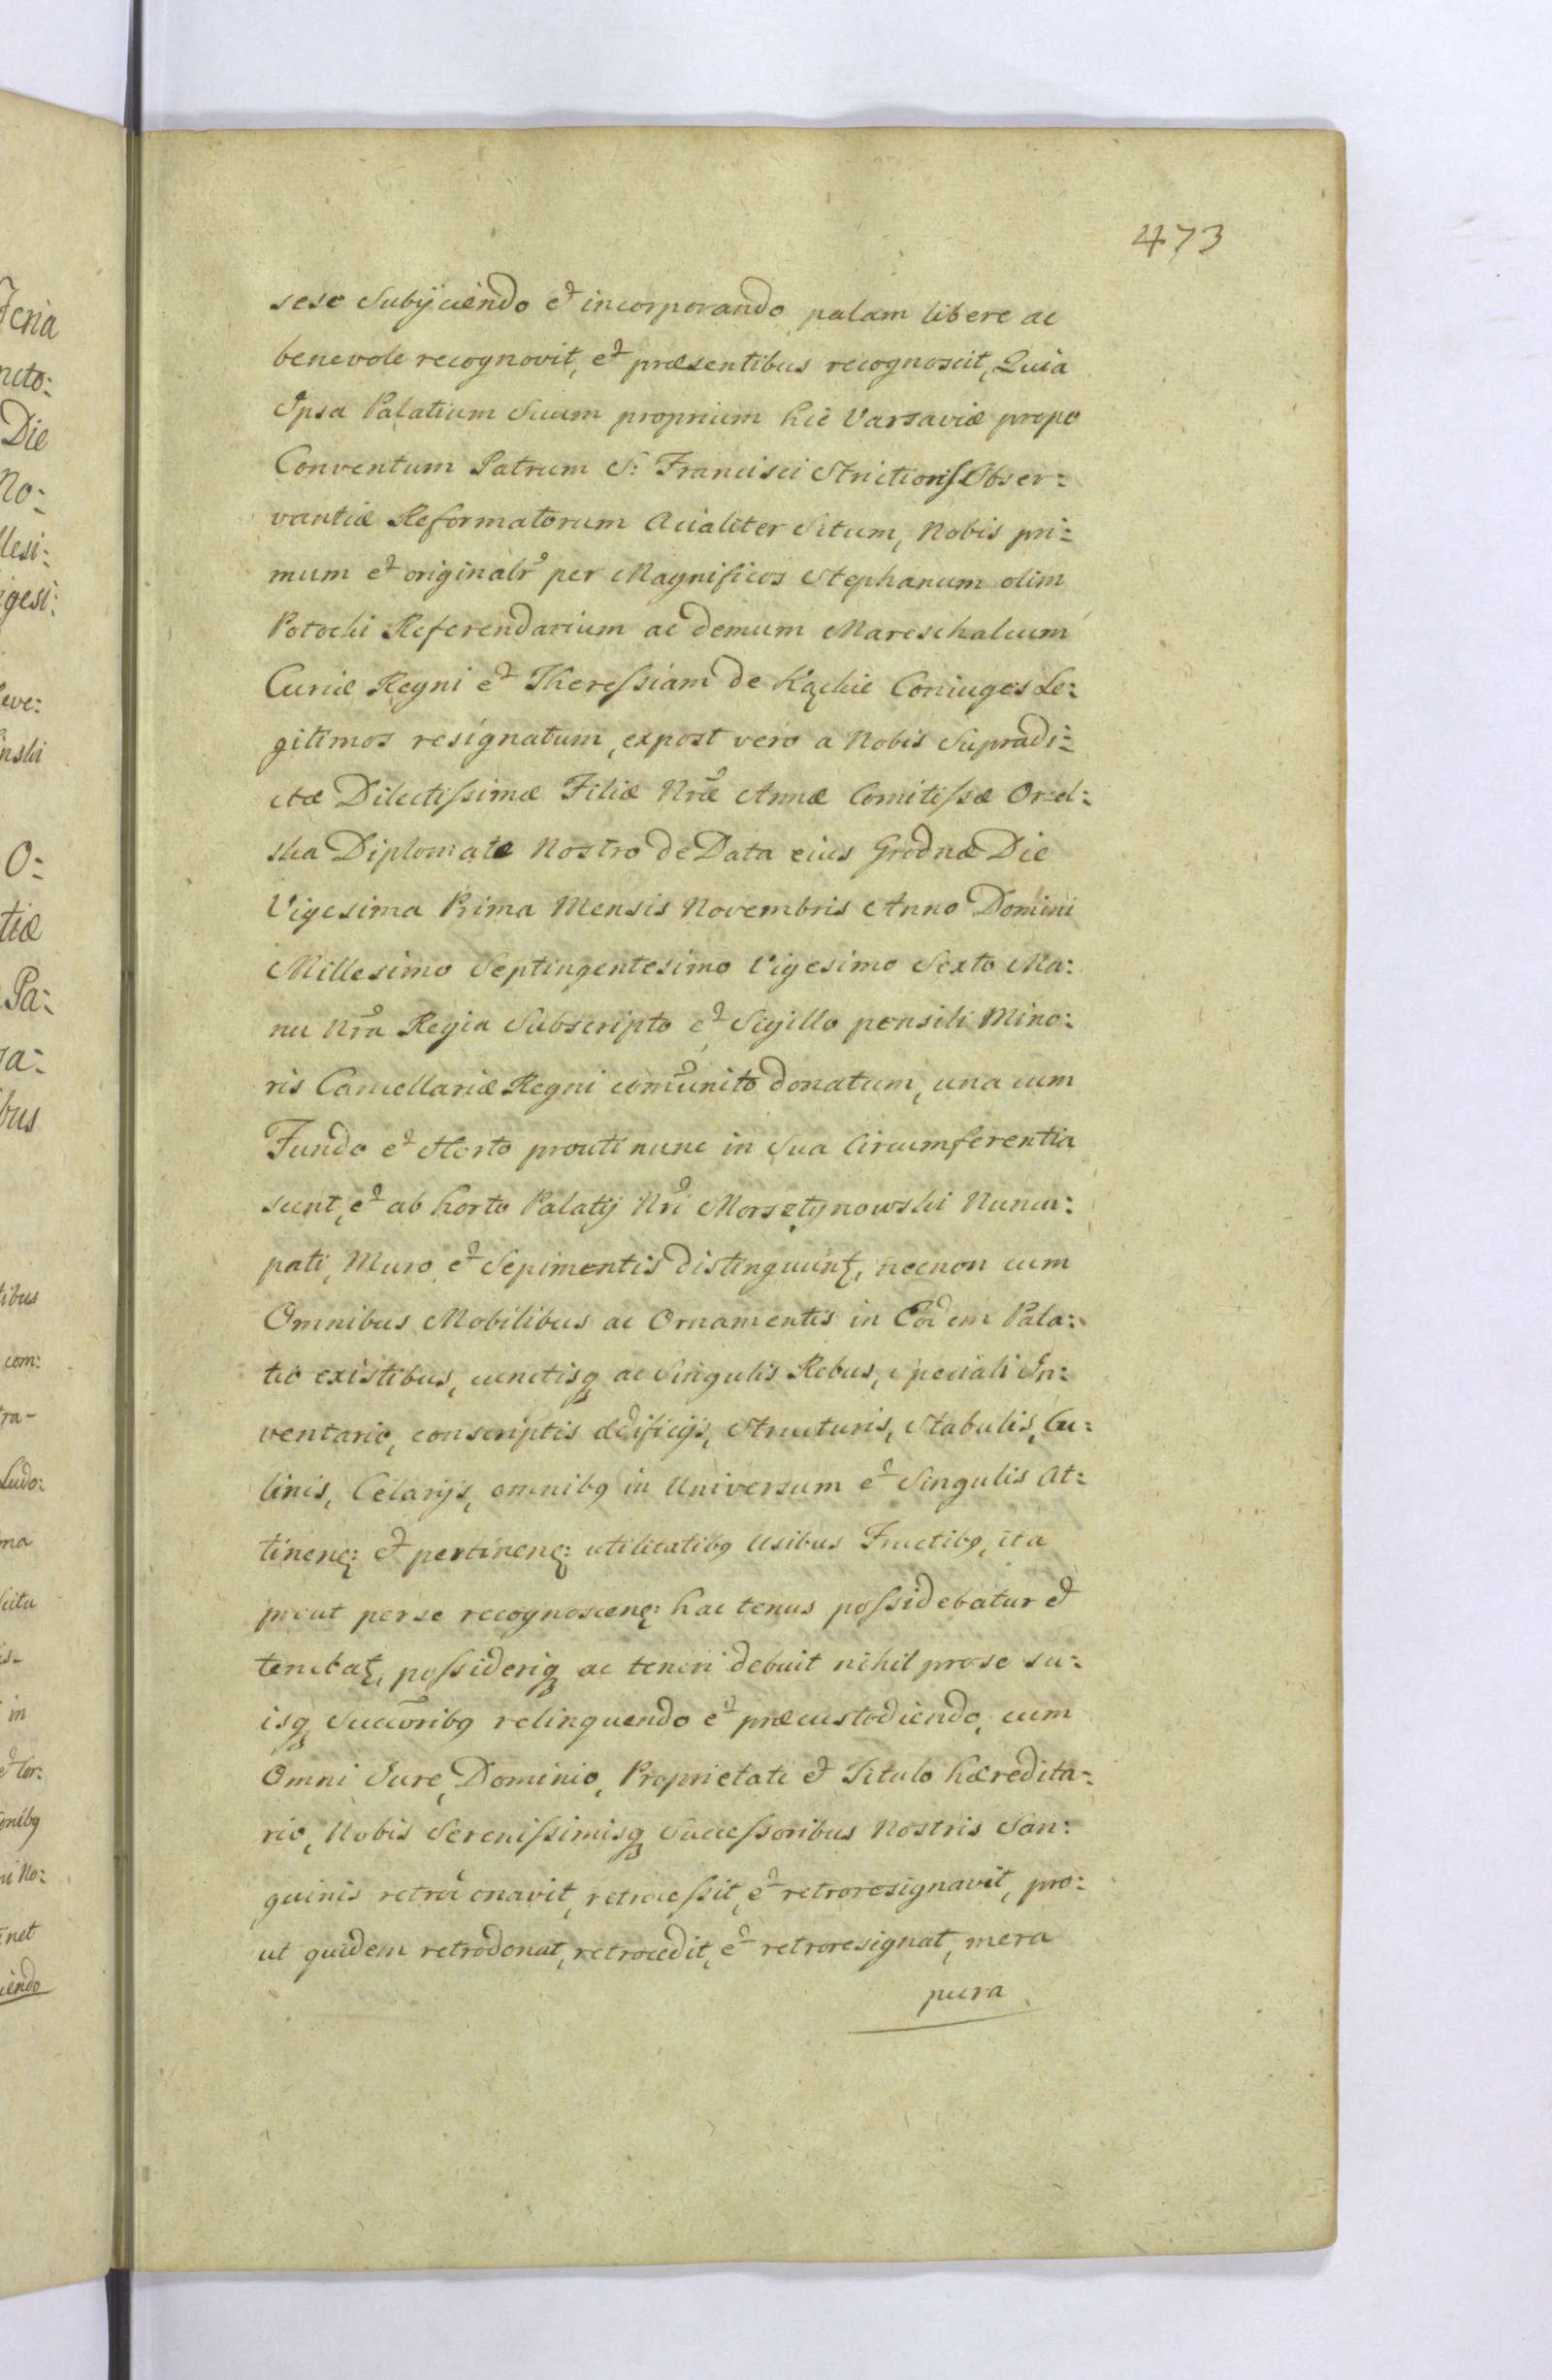 473
sese Subijciendo et incorporando palam libere ac
benevole recognovit, et præsentibus recognoscit, Quia
Ipsa Palatium Suum proprium hic Varsaviæ prope
Conventum Patrum S: Francisci Strictioris Obser:
vantiæ Reformatorum acialiter Situm, Nobis pri:
mum et originalr̃ per Magnificos Stephanum olim
Potocki Referendarium ac demum Mareschalcum
Curiæ Regni et Theressiam de Kąckie Coniuges Le:
gitimos resignatum, expost vero a Nobis Supradi:
ctæ Dilectissimæ Filiæ Nræ Annæ Comitissæ Orzel:
ska Diplomate Nostro de Data eius Grodnæ Die
Vigesima Prima Mensis Novembris Anno Domini
Millesimo Septingentesimo Vigesimo Sexto Ma:
nu Nra Regia Subscripto et Sigillo pensili Mino:
ris Cancellariæ Regni com̃unito donatum, una cum
Fundo et Horto prouti nunc in Sua Circumferentia
sunt, et ab horto Palatij Nri Morsztynowski Nuncu:
pati, Muro et Sepimentis distinguunt, necnon cum
Omnibus Mobilibus ac Ornamentis in Eodem Pala:
tio existibus, cunctisq ac Singulis Rebus, speciali In:
ventario, conscriptis ædificijs, Structuris, Stabulis, Cu:
linis, Celarijs, omnibq in Universum et Singulis At:
tinenc: et pertinenc: utilitatibq Usibus Fructibq, ita
prout per se recognoscenc: hac tenus possidebatur et
tenebat, possideriq ac teneri debuit nihil pro se su:
isq Succoribq relinquendo et præcustodiendo, cum
Omni Jure, Dominio, Proprietate et Titulo hæredita:
rio, Nobis Serenissimisq Successoribus Nostris San:
guinis retrodonavit, retrocessit, et retroresignavit, pro:
ut quidem retrodonat, retrocedit, et retroresignat, mera
pura
Feria
ncto:
Die
No:
llesi:
igesi:
inski
O:
tiæ
Pa:
ra:
bus
tibus
com:
ra-
Ludo:
ma
in
onibq
ni No:
tinet
iendo